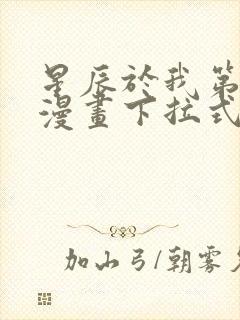 星辰於我第
漫畫下拉式
加山弓/朝雾